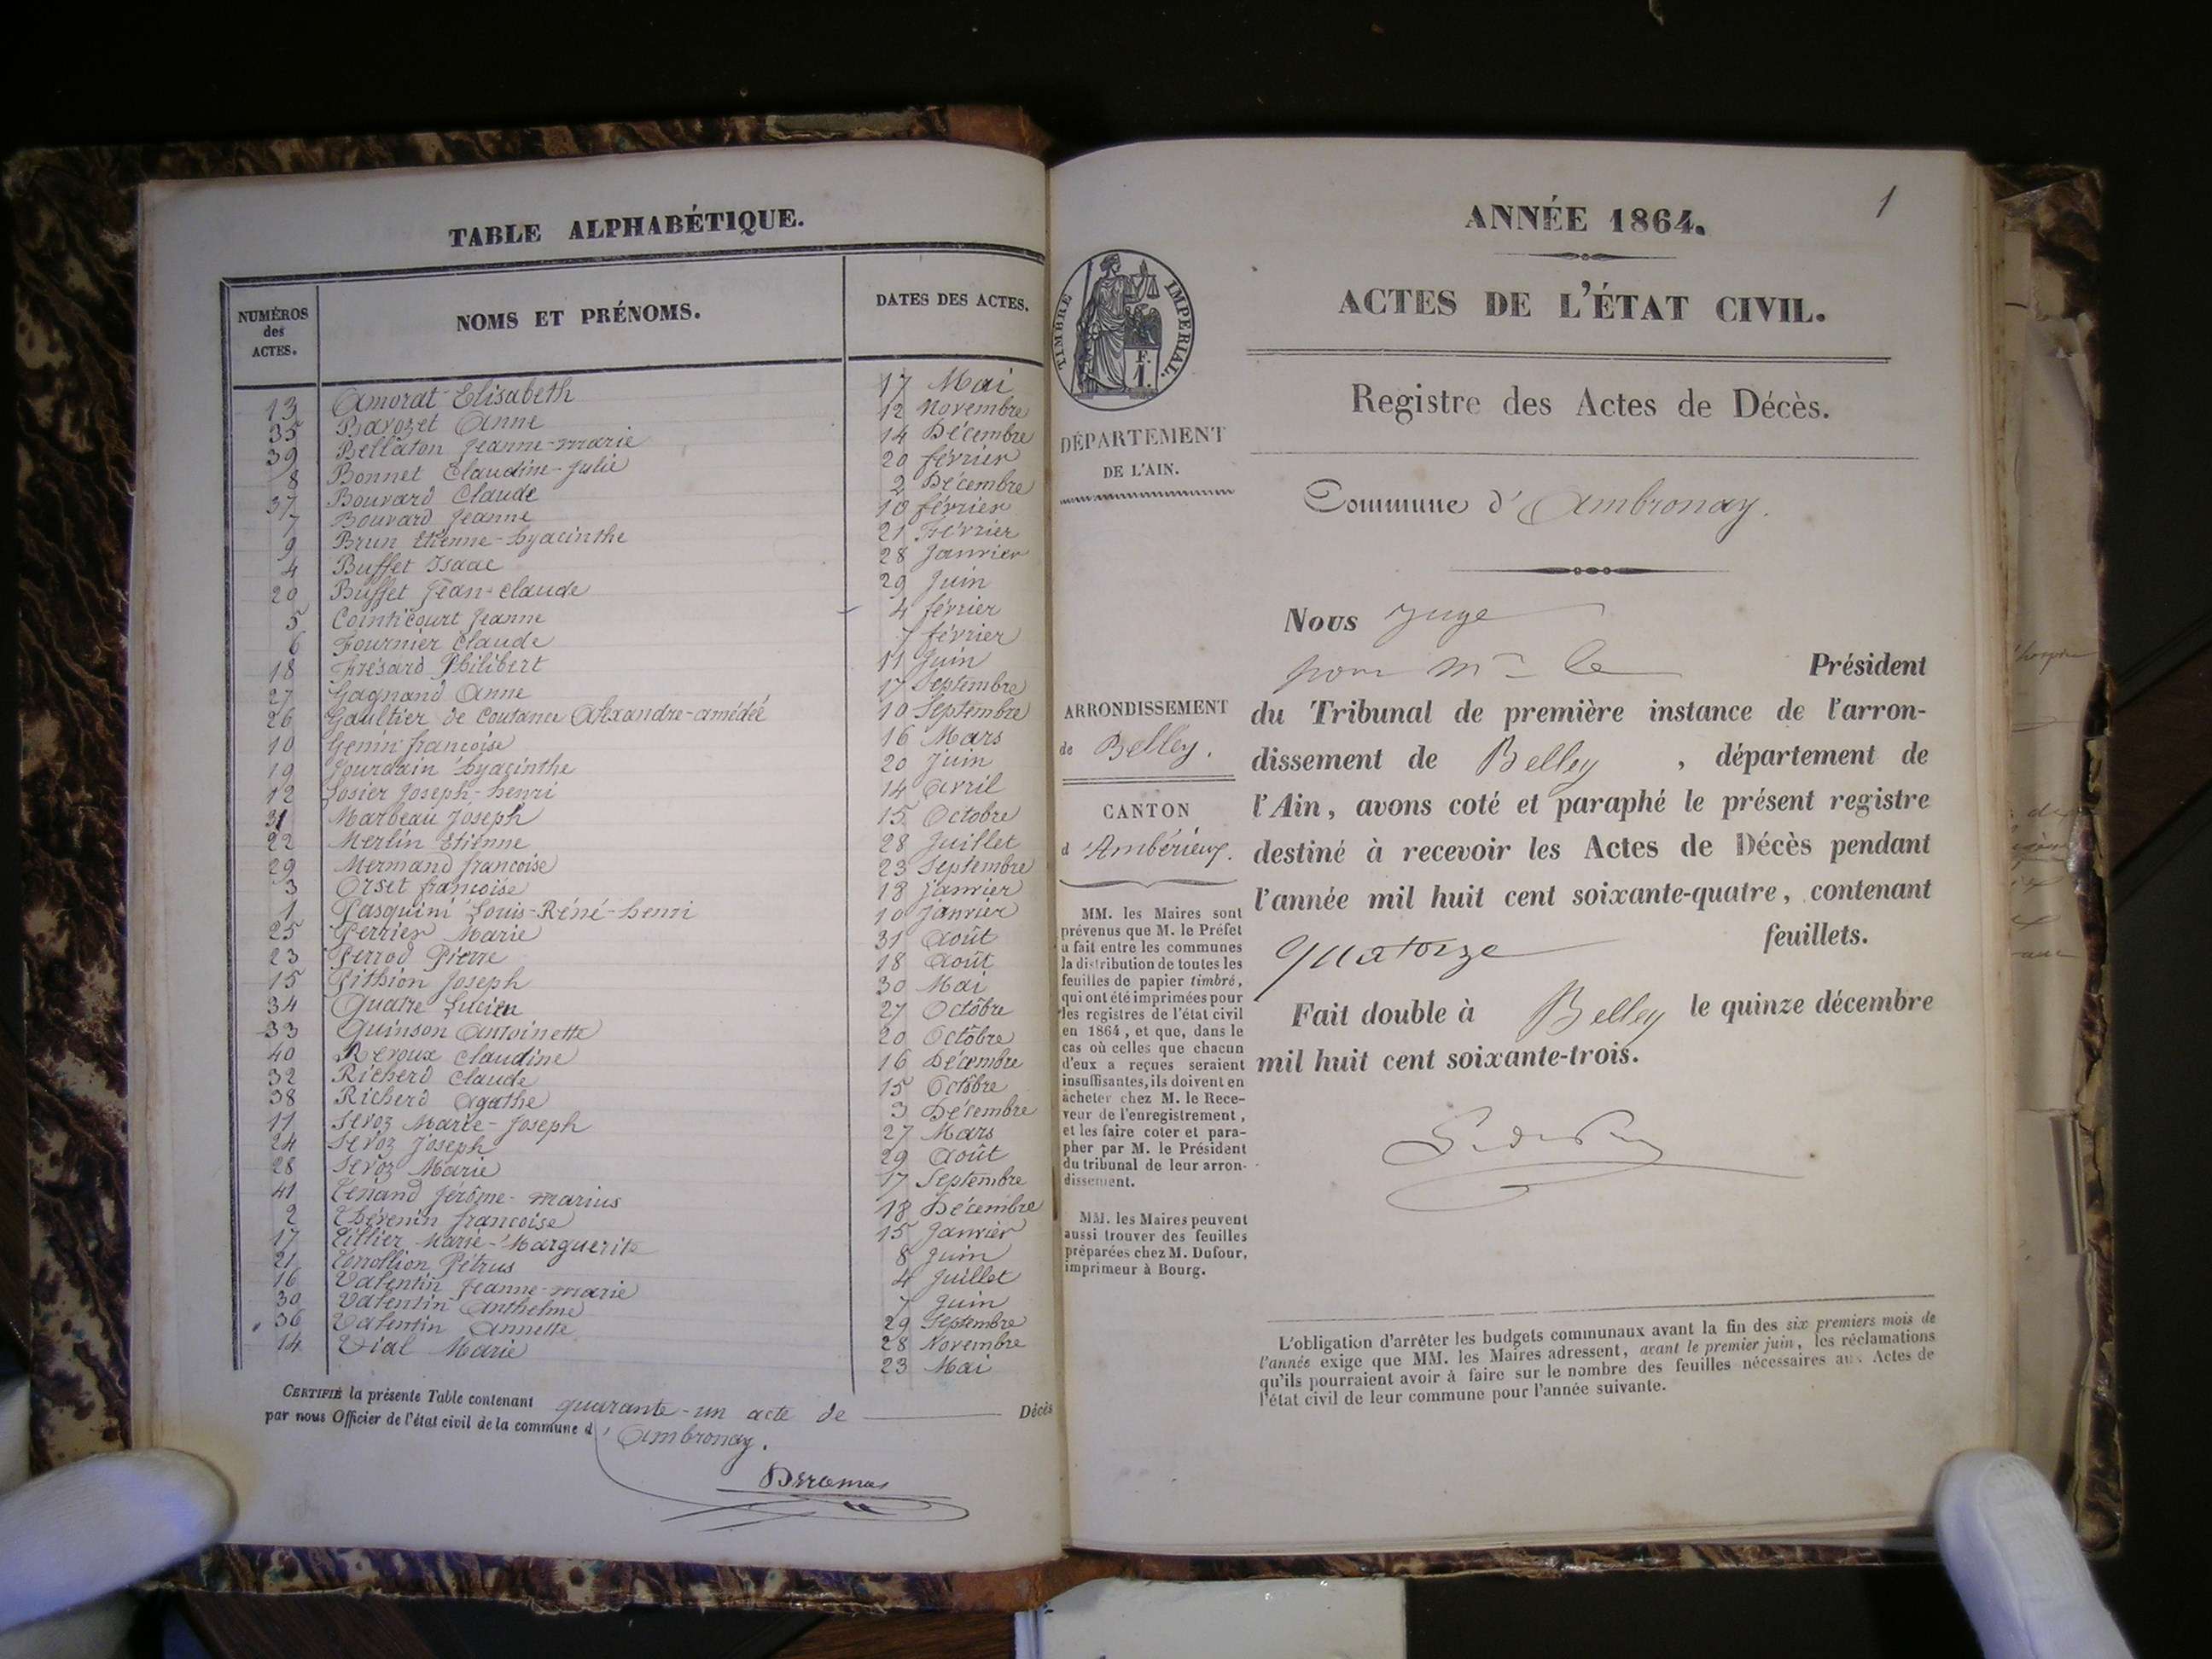 TABLE ALPHABÉTIQUE.
NUMÉROS des ACTES. NOMS ET PRÉNOMS. DATES DES ACTES.
13 Amorat Elisabeth 17 Mai
35 Bavozet Anne 12 Novembre
39 Bellaton Jeanne-marie 14 Décembre
8 Bonnet Claudine-Julie 20 février
37 Bouvard Claude 2 Décembre
7 Bouvard Jeanne 10 février
9 Brun Etienne-hyacinthe 21 Février
4 Buffet Isaac 28 Janvier
20 Buffet Jean-Claude 29 Juin
5 Cointicourt Jeanne 4 février
6 Fournier Claude 7 février
18 Frésard Philibert 11 Juin
27 Gagnand Anne 17 Septembre
26 Gaultier de Coutance Alexandre-amédéé 10 Septembre
10 Genin françoise 16 Mars
19 Jourdain hyacinthe 20 Juin
12 Losier Joseph-henri 14 avril
31 Marbeau Joseph 15 Octobre
22 Merlin Etienne 28 Juillet
29 Mermand françoise 23 Septembre
3 Orset françoise 18 Janvier
1 Pasquini Louis-Réné-henri 10 Janvier
25 Perrier Marie 31 Août
23 Perrod Pierre 18 Août
15 Pithion Joseph 30 Mai
34 Quatre Lucien 27 Octôbre
33 Quinson Antoinette 20 Octôbre
40 Reroux Claudine 16 Décembre
32 Richerd Claude 15 Octôbre
38 Richerd Agathe 3 Décembre
11 Servoz Marie-Joseph 27 Mars
24 Servoz Joseph 29 Août
28 Servoz Marie 17 Septembre
41 Tenand Jérôme-marius 18 Décembre
2 Thévenin françoise 15 Janvier
17 Tillier Marie-Marguerite 8 Juin
21 Torrollion Pétrus 4 Juillet
16 Valentin Jeanne-marie 7 Juin
30 Valentin Anthelme 29 Septembre
36 Valentin Annette 28 Novembre
14 Vial Marie 23 Mai
CERTIFIÉ la présente Table contenant quarante-un acte de Décès
par nous Officier de l'état civil de la commune d'Ambronay.
1
ANNÉE 1864.
ACTES DE L'ÉTAT CIVIL.
Registre des Actes de Décès.
TIMBRE IMPÉRIAL.
F. 1.
DÉPARTEMENT
DE L'AIN.
ARRONDISSEMENT
de Belley.
CANTON
d'Ambérieux.
MM. les Maires sont
prévenus que M. le Préfet
a fait entre les communes
la distribution de toutes les
feuilles de papier timbré,
qui ont été imprimées pour
les registres de l'état civil
en 1864, et que, dans le
cas où celles que chacun
d'eux a reçues seraient
insuffisantes, ils doivent en
acheter chez M. le Rece-
veur de l'enregistrement,
et les faire coter et para-
pher par M. le Président
du tribunal de leur arron-
dissement.
MM. les Maires peuvent
aussi trouver des feuilles
préparées chez M. Dufour,
imprimeur à Bourg.
Commune d'Ambronay.
Nous Juge
pour Mr le Président
du Tribunal de première instance de l'arron-
dissement de Belley, département de
l'Ain, avons coté et paraphé le présent registre
destiné à recevoir les Actes de Décès pendant
l'année mil huit cent soixante-quatre, contenant
quatorze feuillets.
Fait double à Belley le quinze décembre
mil huit cent soixante-trois.
L'obligation d'arrêter les budgets communaux avant la fin des six premiers mois de
l'année exige que MM. les Maires adressent, avant le premier juin, les réclamations
qu'ils pourraient avoir à faire sur le nombre des feuilles nécessaires aux Actes de
l'état civil de leur commune pour l'année suivante.